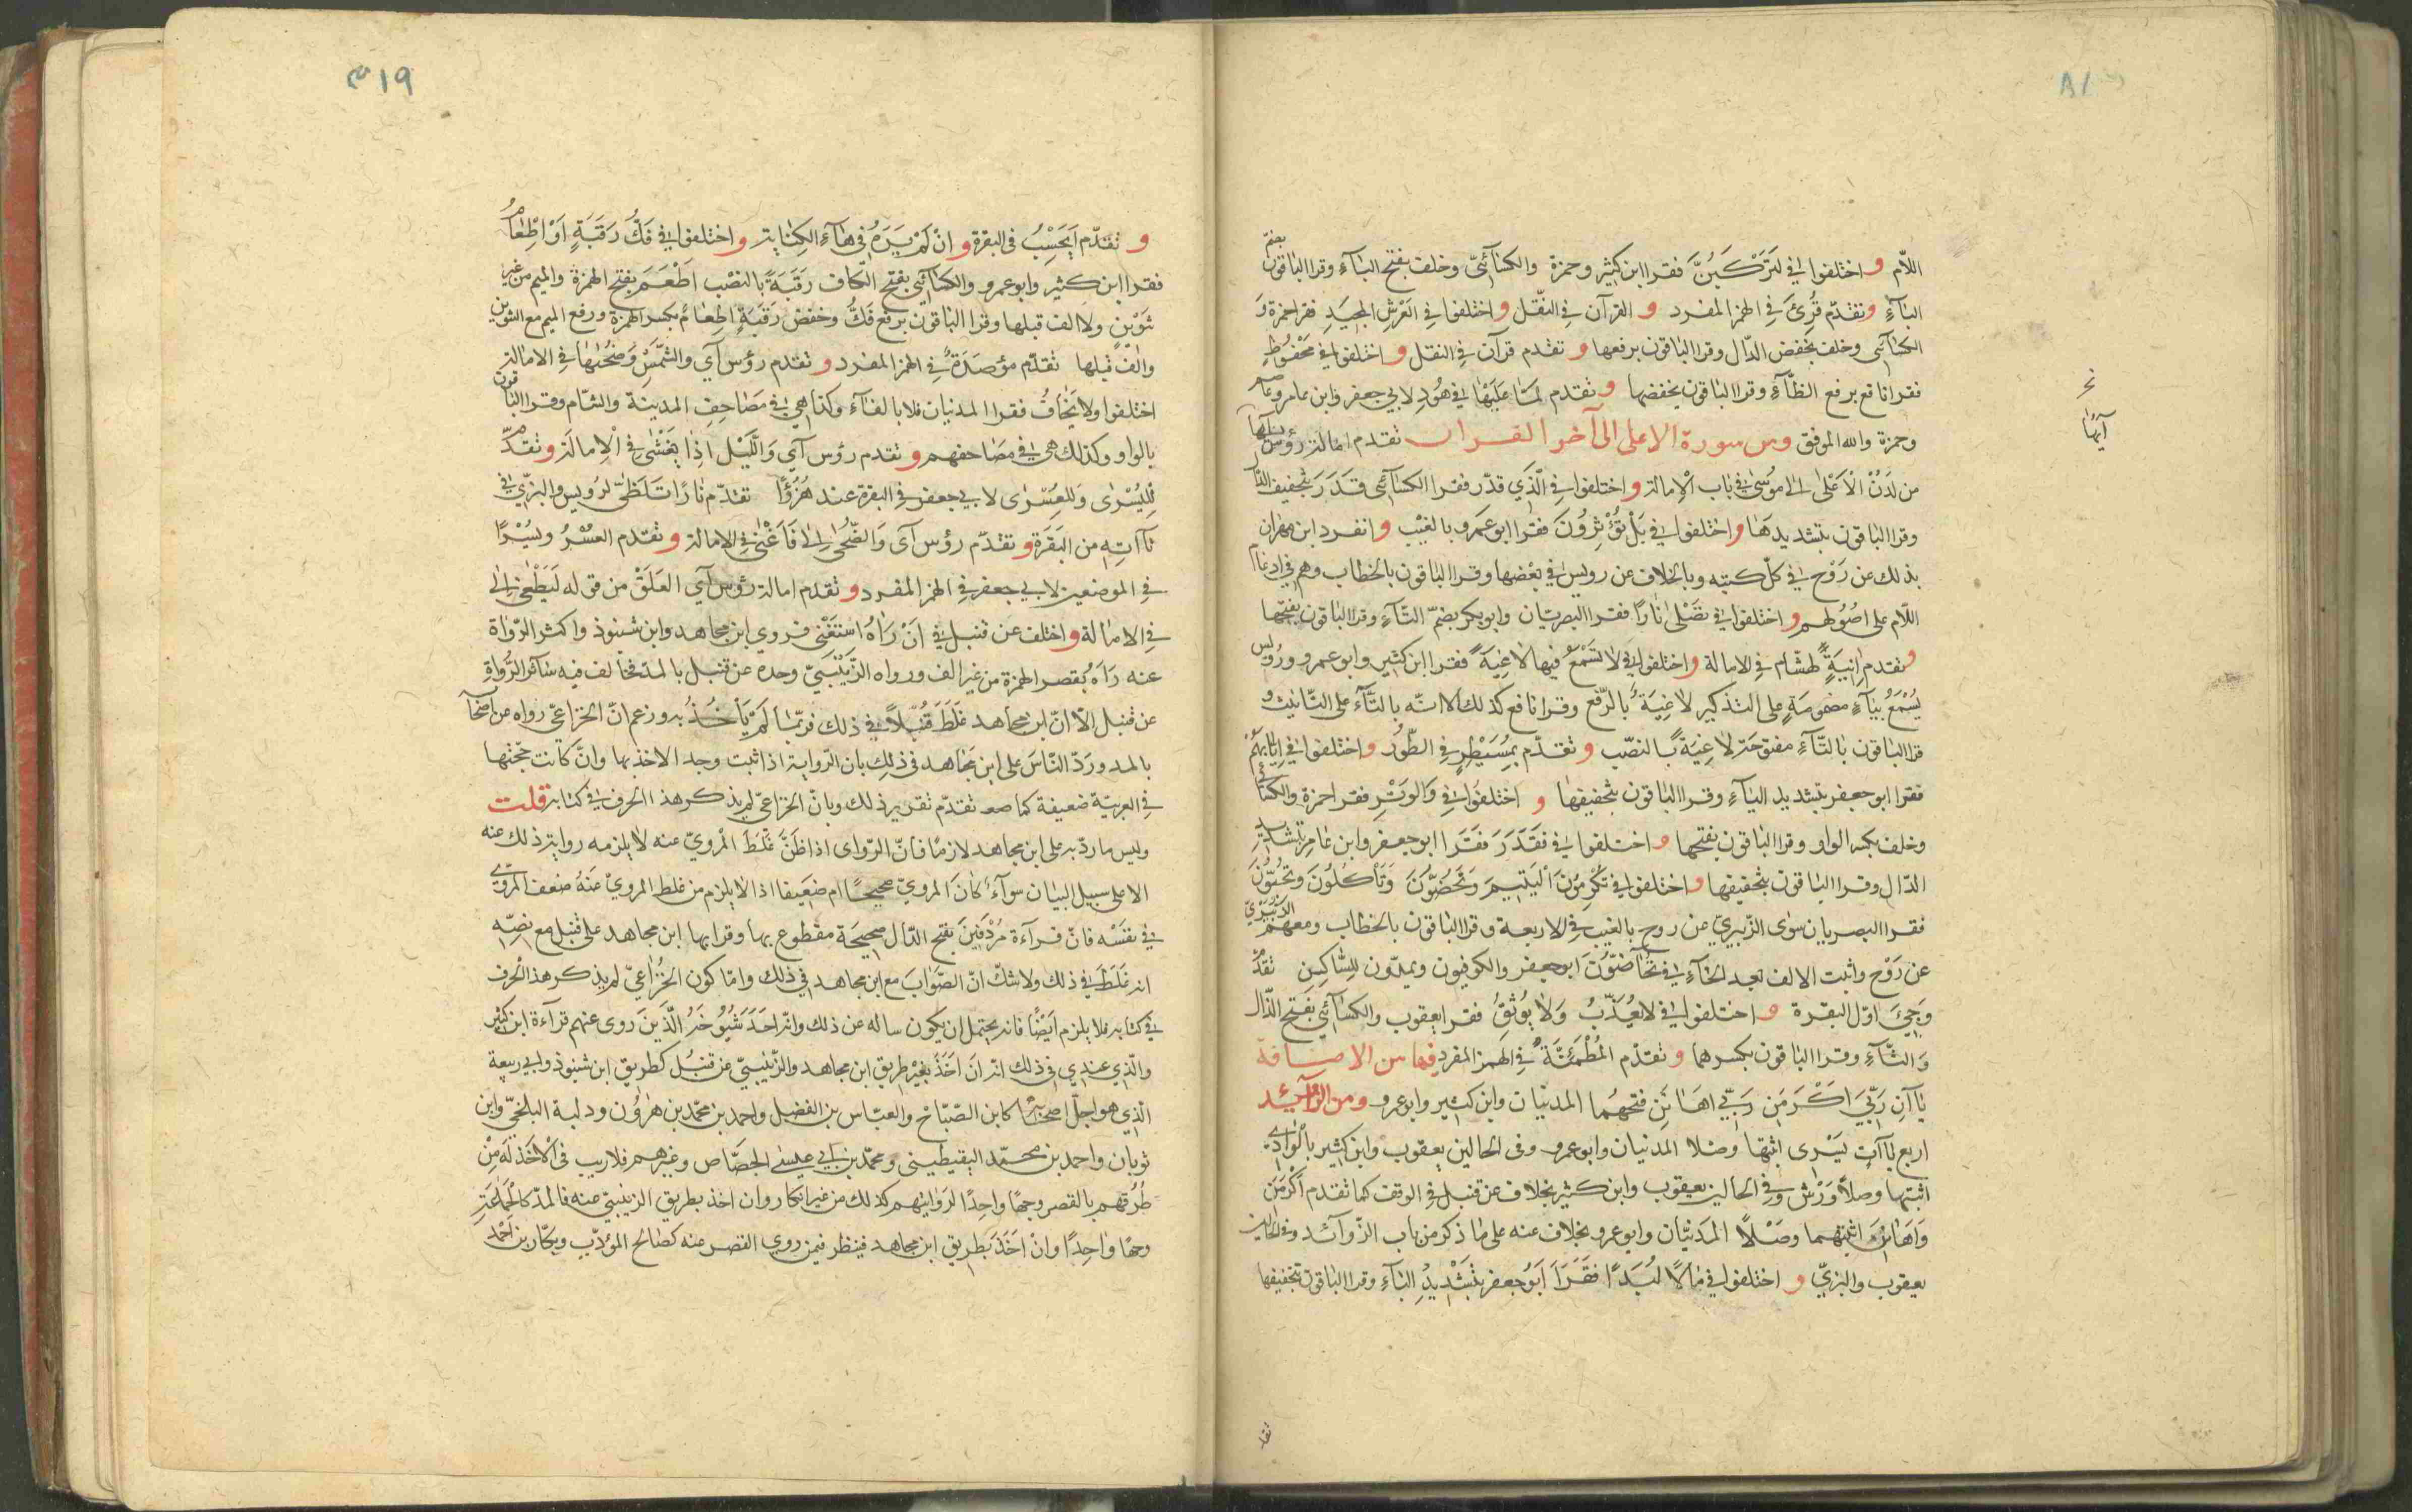 اللّام و اختلفوا في لتركبنّ فقرا ابن كثير وحمزة والكسآئيّ وخلف بفتح البآء وقرا الباقون بضمّ
البآء وتقدّم قُرِئَ في الهمز المفرد و القرآن في النقل و اختلفوا في العرش المجيد فقرا حمزة و
الكسآئي وخلف بخفض الدّال وقرا الباقون برفعها و تقدم قرآن في النقل و اختلفوا في محفوظ
فقرا نافع برفع الظّآء وقرا الباقون بخفضها و تقدم لمّا عليها في هود لابي جعفر وابن عامر وعاصم
وحمزة والله الموفق ومن سورة الاعلى الى آخر القران تقدم امالة رؤس آيها
من لدن الاعلى الى موسى في باب الامالة و اختلفوا في الّذي قدّر فقرا الكسآئي قدر بتخفيف الدّال
وقرا الباقون بتشديدها و اختلفوا في بل تؤثرون فقرا ابو عمرو بالغيب و انفرد ابن مهران
بذلك عن روح في كلّ كتبه وبالخلاف عن رويس في بعضها وقرا الباقون بالخطاب وهم في ادغام
اللّام على اصولهم و اختلفوا في تصلى نارا فقرا البصريّان وابو بكر بضمّ التّآء وقرا الباقون بفتحها
وتقدم انية لهشام في الامالة و اختلفوا في لا تسمع فيها لاغية فقرا ابن كثير وابو عمرو ورويس
يسمع بيآء مضمومة على التذكير لاغية بالرّفع وقرا نافع كذلك الا انّه بالتّآء على التّانيث و
قرا الباقون بالتّآء مفتوحة لاغية بالنصب و تقدّم بمسيطر في الطّور و اختلفوا في ايابهم
فقرا ابو جعفر بتشديد اليآء وقرا الباقون بتخفيفها و اختلفوا في والوتر فقرا حمزة والكسآئي
وخلف بكسر الواو وقرا الباقون بفتحها و اختلفوا في فقدّر فقرا ابو جعفر وابن عامر بتشديد
الدّال وقرا الباقون بتخفيفها و اختلفوا في تكرمون اليتيم وتحضون وتاكلون وتحبّون
فقرا البصريان سوى الزّبيريّ عن روح بالغيب في الاربعة وقرا الباقون بالخطاب ومعهم الزّبيريّ
عن روح واثبت الالف بعد الحآء في تحآضّون ابو جعفر والكوفيون ويمدّون للسّاكن تقدّم
وجيء اوّل البقرة و اختلفوا في لا يعذّب ولا يوثق فقرا يعقوب والكسآئي بفتح الذّال
والثّآء وقرا الباقون بكسرهما و تقدّم المطمئنّة في الهمز المفرد فيها من الاضافة
يآآن ربّي اكرمن ربّي اهانن فتحهما المدنيّان وابن كثير وابو عمرو ومن الزوآئد
اربع يآآت يسرى اثبتها وصلا المدنيان وابو عمرو وفى الحالين يعقوب وابن كثير بالوادي
اثبتها وصلا ورش وفي الحالين يعقوب وابن كثير بخلاف عن قنبل في الوقف كما تقدم اكرمن
واهانن اثبتهما وصلا المدنيّان وابو عمرو بخلاف عنه على ما ذكر من باب الزّوآئد وفي الحالين
يعقوب والبزيّ و اختلفوا في مالا لبدا فقرا ابو جعفر بتشديد البآء وقرا الباقون بتخفيفها
تقد
نخ
آيها
٨١
١٩م
و تقدّم ايحسب في البقرة و ان لم يره في هآء الكناية و اختلفوا في فكّ رقبة او اطعام
فقرا ابن كثير وابو عمرو والكسآئي بفتح الكاف رقبة بالنصب اطعم بفتح الهمزة والميم من غير
تنوين ولا الف قبلها وقرا الباقون برفع فكّ وخفض رقبة اطعام بكسر الهمزة ورفع الميم مع التنوين
والف قبلها تقدّم مؤصدة في الهمز المفرد و تقدم رؤس آي والشّمس وضحٰها في الامالة
اختلفوا ولا يخاف فقرا المدنيان فلا بالفآء وكذا هي في مصاحف المدينة والشّام وقرا الباقون
بالواو وكذلك هي في مصاحفهم و تقدم رؤس آي واللّيل اذا يغشى في الامالة و تقدّم
لليسرى وللعسرى لابي جعفر في البقرة عند هزؤا تقدّم نارا تلظّى لرويس والبزّيّ في
تآآته من البقرة و تقدّم رؤس آي والضّحى الى فاغنى في الامالة و تقدّم العسر ويسرا
في الموضعين لابي جعفر في الهمز المفرد و تقدم امالة رؤس آي العلق من قوله ليطغى الى
في الامالة و اختلف عن قنبل في ان راه استغنى فروي ابن مجاهد وابن شنبوذ واكثر الرّواة
عنه راه بقصر الهمزة من غير الف ورواه الزّينبيّ وحده عن قنبل بالمد فخالف فيه سآئر الرّواة
عن قنبل الّا انّ ابن مجاهد غلط قنبلا في ذلك فربّما لم ياخذ به وزعم انّ الخزاعيّ رواه عن اصحآ
بالمد وردّ النّاس على ابن مجاهد في ذلك بان الرّواية اذا ثبتت وجد الاخذ بها وان كانت حجّتها
في العربيّة ضعيفة كما تقدّم تقرير ذلك وبانّ الخزاعيّ لم يذكر هذا الحرف في كتابه قلت
وليس ما ردّ به على ابن مجاهد لازما فانّ الرّاوى اذا ظنّ غلط المرويّ عنه لا يلزمه رواية ذلك عنه
الا على سبيل البيان سوآء كان المرويّ صحيحا ام ضعيفا اذ لا يلزم من غلط المرويّ عنه ضعف المرويّ
في نفسه فانّ قرآءة مردفين بفتح الدّال صحيحة مقطوع بها وقرا بها ابن مجاهد على قنبل مع نصّه
انه غلط في ذلك ولا شكّ انّ الصّواب مع ابن مجاهد في ذلك وامّا كون الخزاعيّ لم يذكر هذا الحرف
في كتابه فلا يلزم ايضا فانه يحتمل ان يكون ساله عن ذلك وانّه احد شيوخه الّذين روى عنهم قرآءة ابن كثير
والّذي عندي في ذلك انّه ان اخذ بغير طريق ابن مجاهد والزّينبيّ عن قنبل كطريق ابن شنبوذ وابي ربيعة
الّذي هو اجلّ اصحابه كابن الصّبّاح والعبّاس بن الفضل واحمد بن محمّد بن هارون ودلبة البلخيّ وابن
ثوبان واحمد بن محمّد اليقطيني ومحمّد بن عيسى الجصّاص وغيرهم فلا ريب في الاخذ له من
طرقهم بالقصر وجها واحدا لروايتهم كذلك من غير انكار وان اخذ بطريق الزينبيّ عنه فالمدّ كالجماعة
وجها واحدا وان اخذ بطريق ابن مجاهد فينظر فيمن روي القصر عنه كصالح المؤدّب وبكّار بن احمد